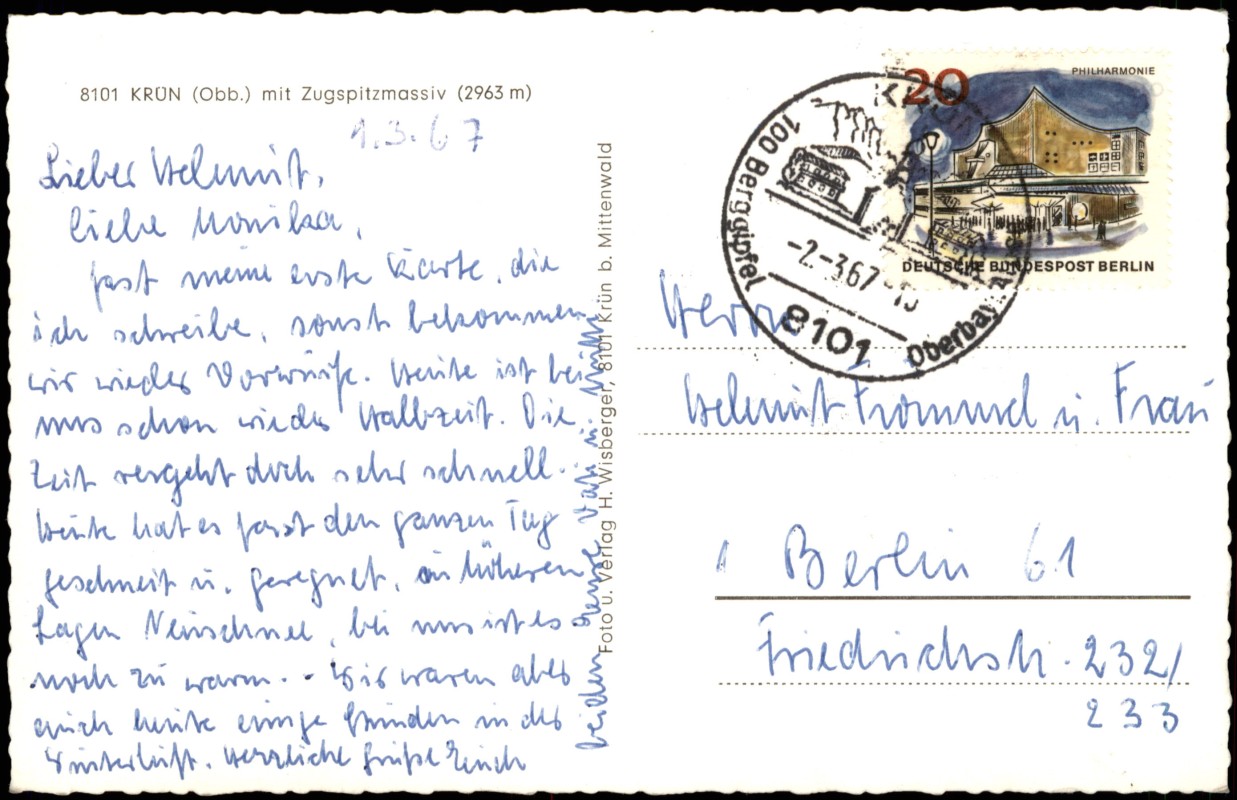 8101 KRÜN (Obb.) mit Zugspitzmassiv (2963 m)
1.3.67
Lieber Helmut,
liebe Monika,
fast meine erste Karte, die
ich schreibe, sonst bekommen
wir wieder Vorwürfe. Heute ist bei
uns schon wieder Halbzeit. Die
Zeit vergeht doch sehr schnell.
Heute hat es fast den ganzen Tag
geschneit u. geregnet, in höheren
Lagen Neuschnee, bei uns ist es
noch zu warm. Wir waren aber
auch heute einige Stunden in der
Winterluft. Herzliche Grüße Euch
beiden Vati u. Mutti
Foto u. Verlag H. Wisberger, 8101 Krün b. Mittenwald
20
PHILHARMONIE
DEUTSCHE BUNDESPOST BERLIN
KRÜN
100 Berggipfel
-2.-3.67
8101
Oberbay.
Herrn
Helmut Trommel u. Frau
1 Berlin 61
Friedrichstr. 232/
233